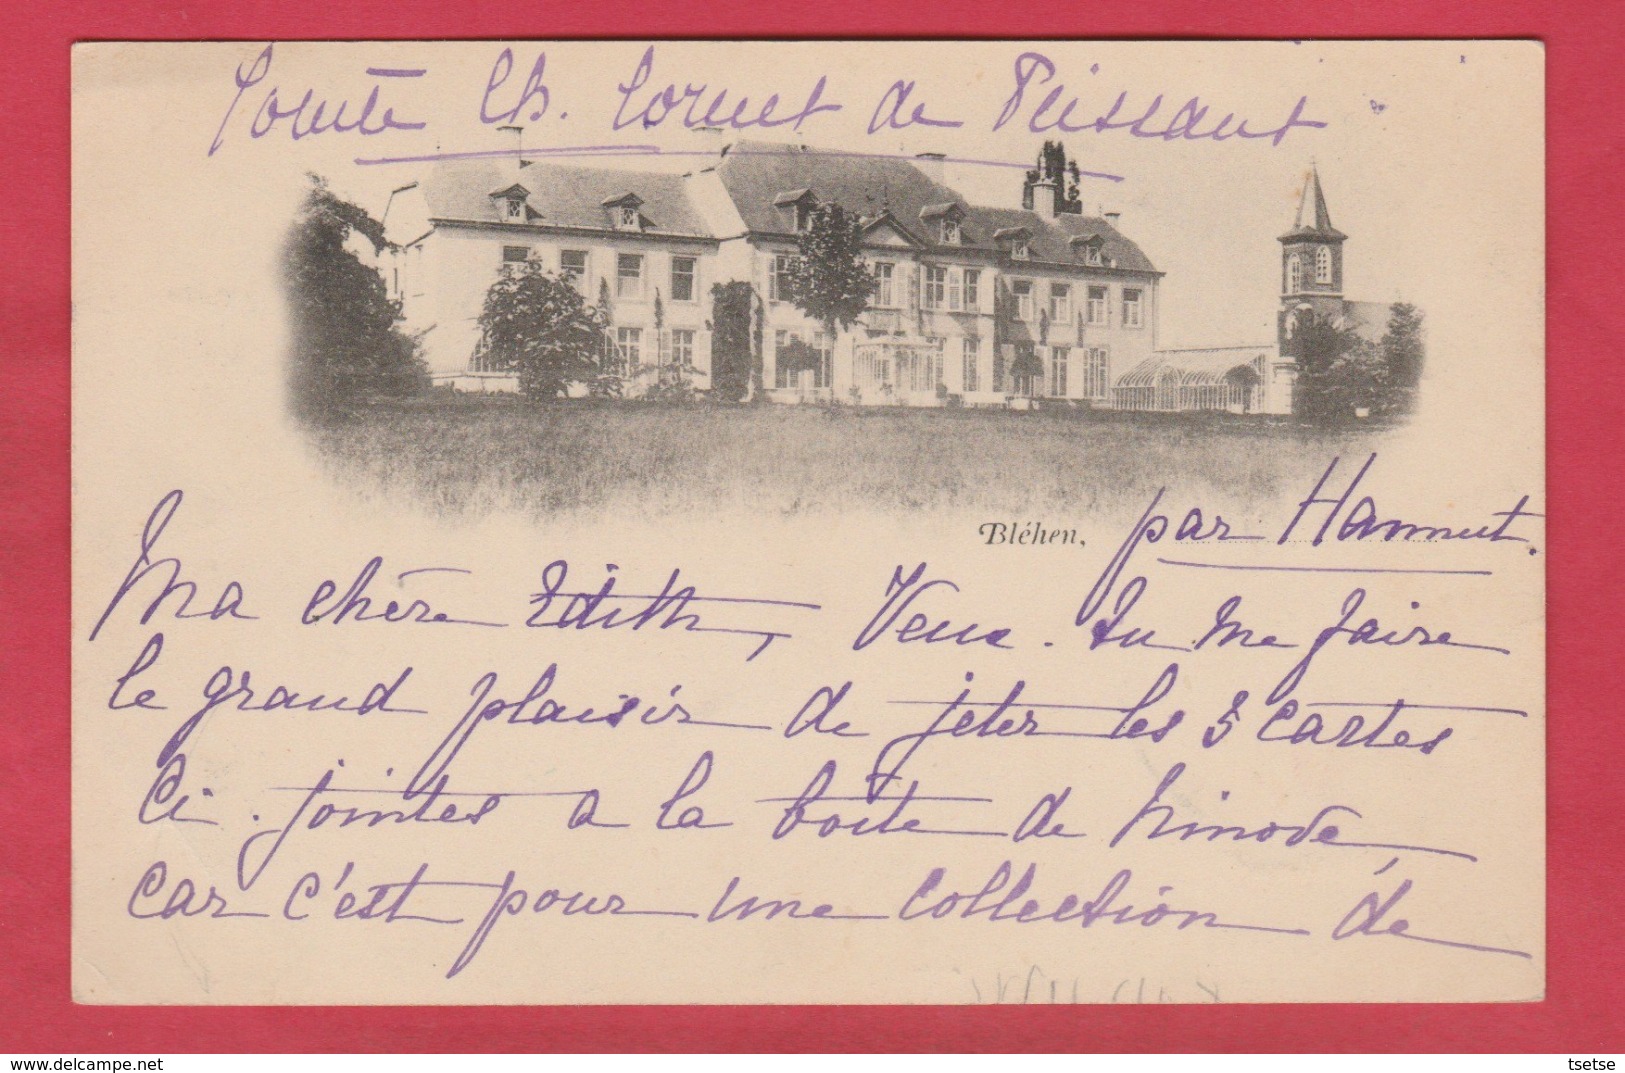 Comte Ch. Cornet de Peissant
Bléhen, par Hannut.
Ma chère Edith, Veux-tu me faire
le grand plaisir de jeter les 5 cartes
ci-jointes à la boîte de Ninove,
car c'est pour une collection de
www.delcampe.net
tsetse